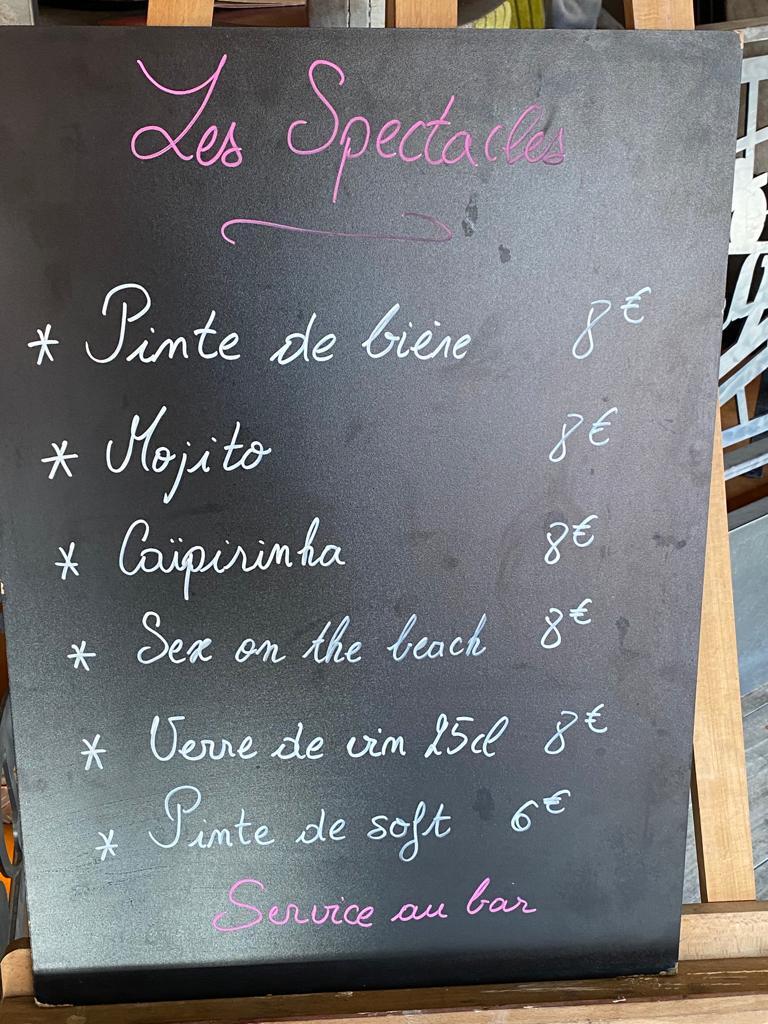 Les Spectacles
* Pinte de bière 8€
* Mojito 8€
* Caïpirinha 8€
* Sex on the beach 8€
* Verre de vin 25cl 8€
* Pinte de soft 6€
Service au bar